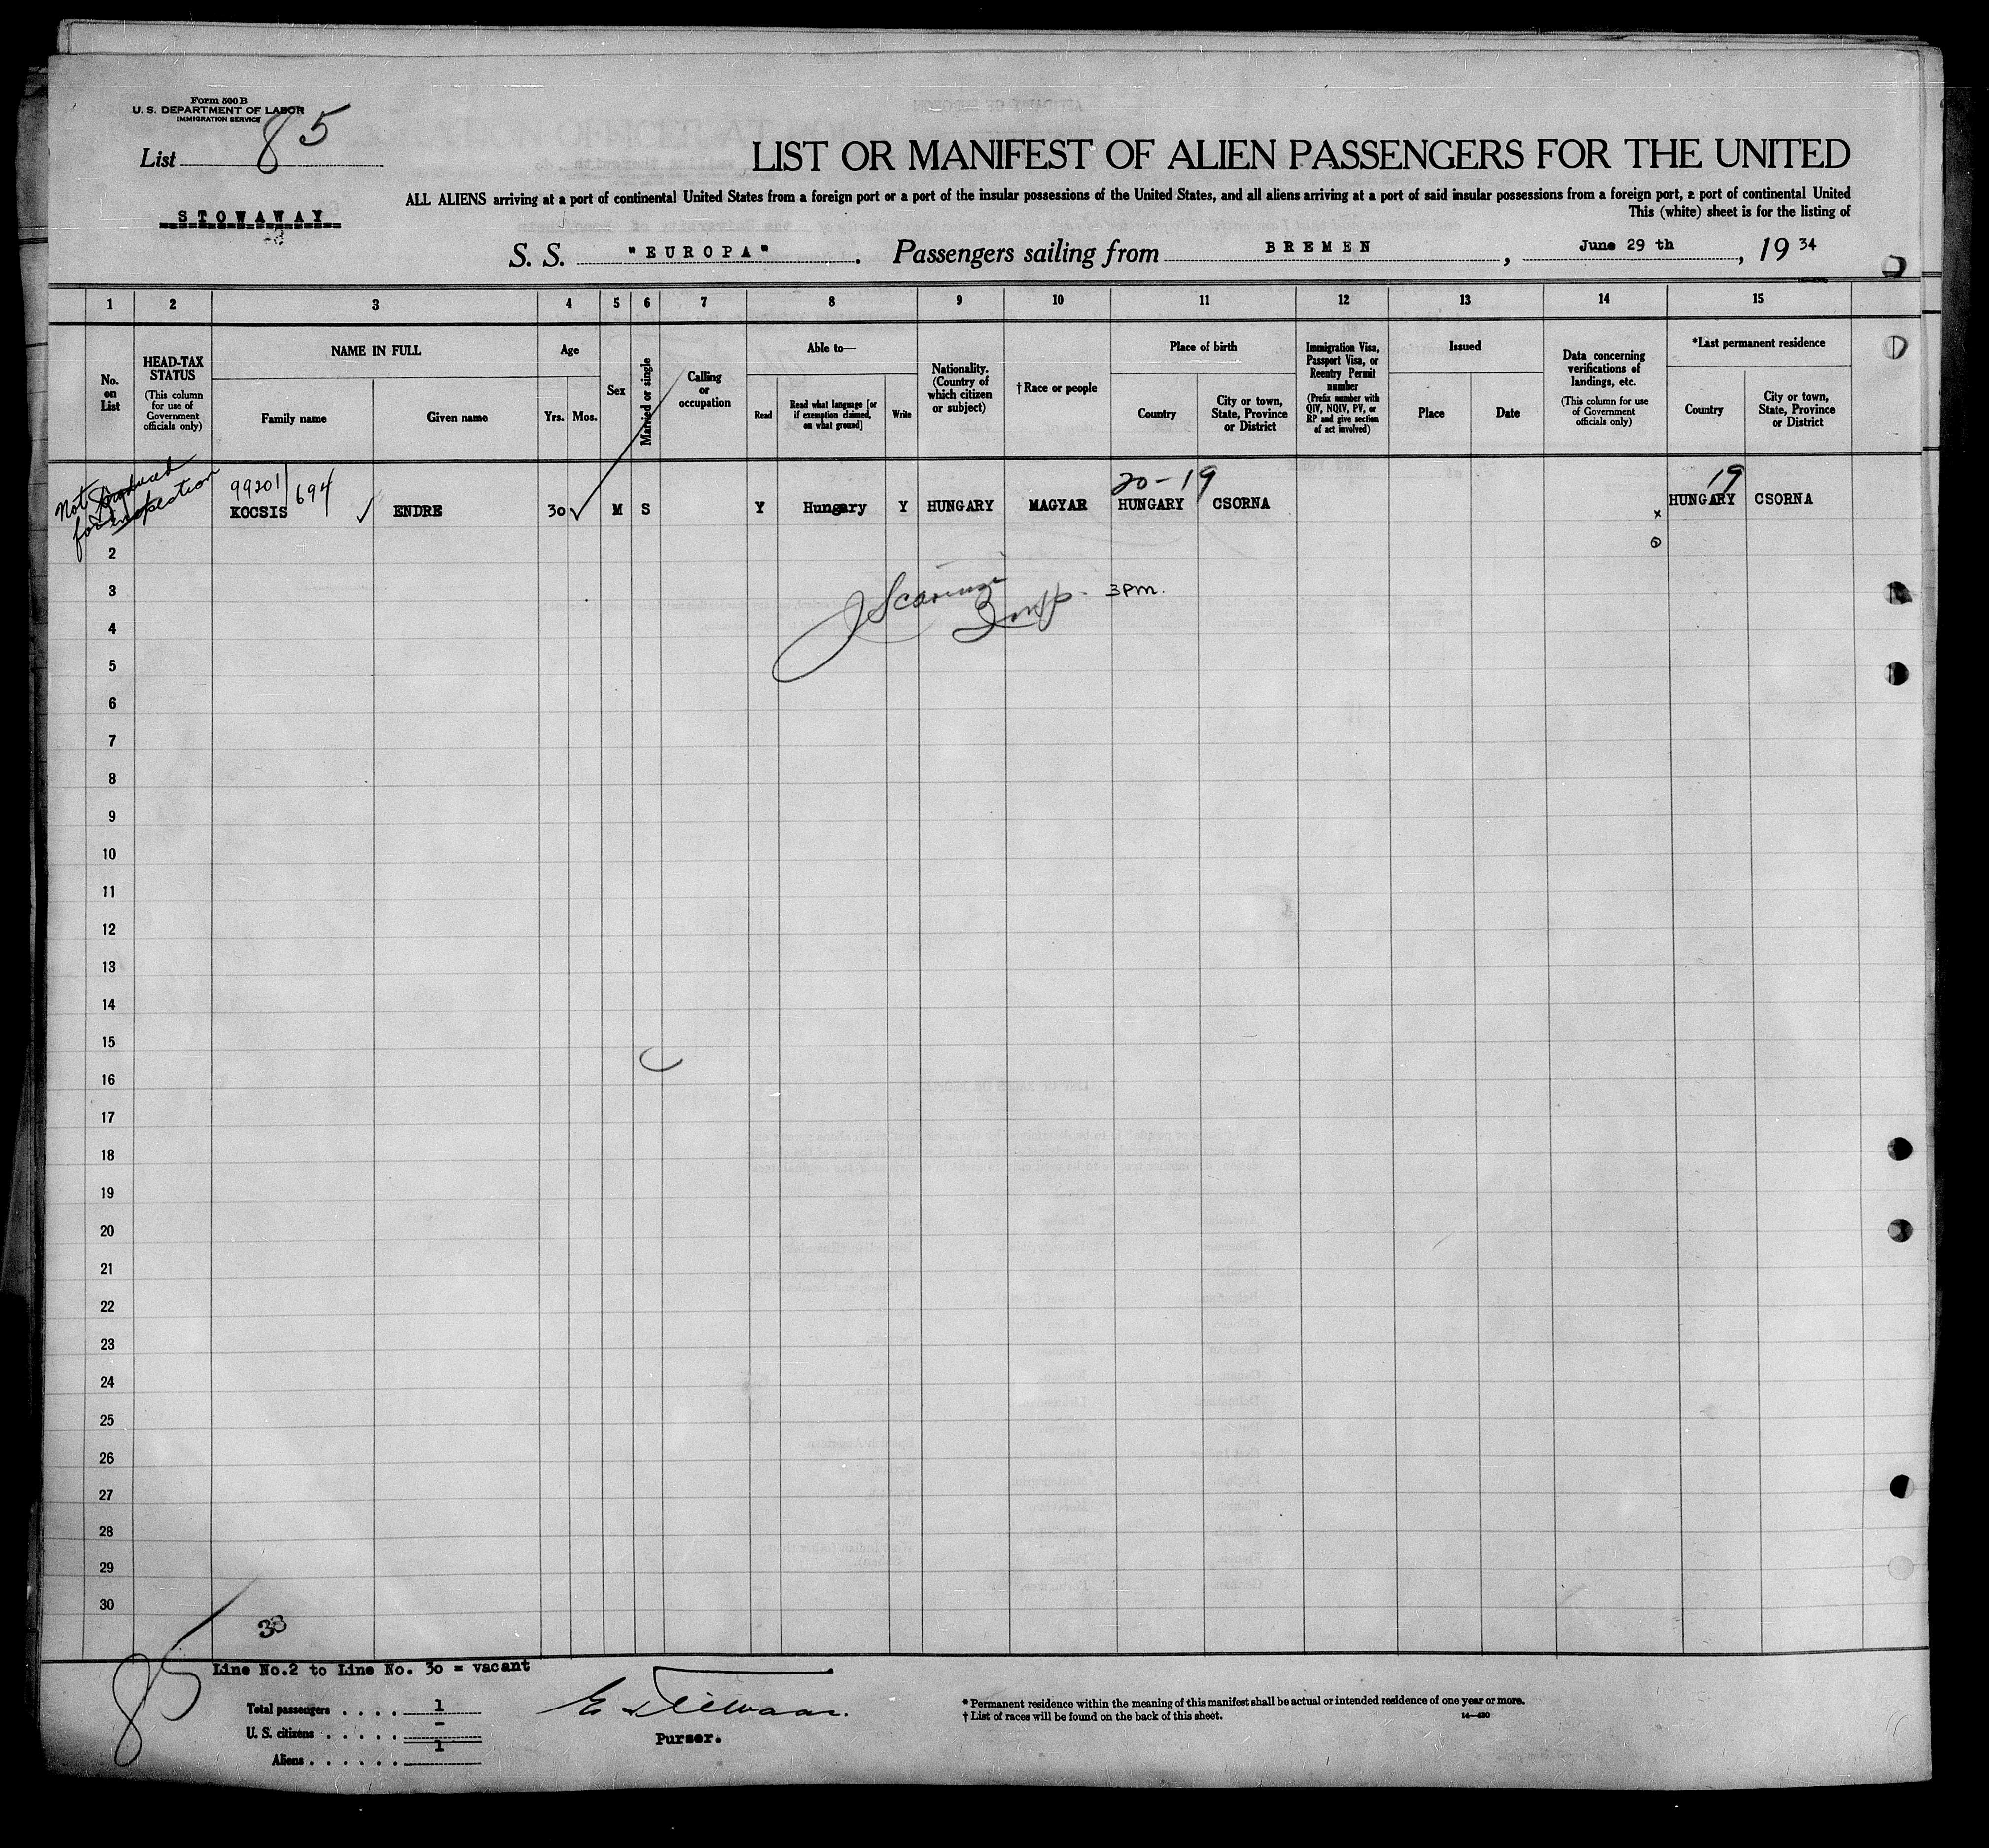 Form 500 B
U. S. DEPARTMENT OF LABOR
IMMIGRATION SERVICE
List 85
LIST OR MANIFEST OF ALIEN PASSENGERS FOR THE UNITED
ALL ALIENS arriving at a port of continental United States from a foreign port or a port of the insular possessions of the United States, and all aliens arriving at a port of said insular possessions from a foreign port, a port of continental United
This (white) sheet is for the listing of
STOWAWAY
S. S. "EUROPA". Passengers sailing from BREMEN, June 29 th, 19 34
1 2 3 4 5 6 7 8 9 10 11 12 13 14 15
No. on List
HEAD-TAX STATUS
(This column for use of Government officials only)
NAME IN FULL
Family name
Given name
Age
Yrs.
Mos.
Sex
Married or single
Calling or occupation
Able to—
Read
Read what language [or if exemption claimed, on what ground]
Write
Nationality. (Country of which citizen or subject)
† Race or people
Place of birth
Country
City or town, State, Province or District
Immigration Visa, Passport Visa, or Reentry Permit number
(Prefix number with QIV, NQIV, PV, or RP and give section of act involved)
Issued
Place
Date
Data concerning verifications of landings, etc.
(This column for use of Government officials only)
*Last permanent residence
Country
City or town, State, Province or District
Not
for inspection
99201/694
20-19
19
KOCSIS ENDRE 30 M S Y Hungary Y HUNGARY MAGYAR HUNGARY CSORNA HUNGARY CSORNA
x
2
3
3 pm.
4
5
6
7
8
9
10
11
12
13
14
15
16
17
18
19
20
21
22
23
24
25
26
27
28
29
30
38
85
Line No.2 to Line No. 30 = vacant
Total passengers . . . . 1
U. S. citizens . . . . . -
Aliens . . . . . . 1
Purser.
* Permanent residence within the meaning of this manifest shall be actual or intended residence of one year or more.
† List of races will be found on the back of this sheet.
14-430